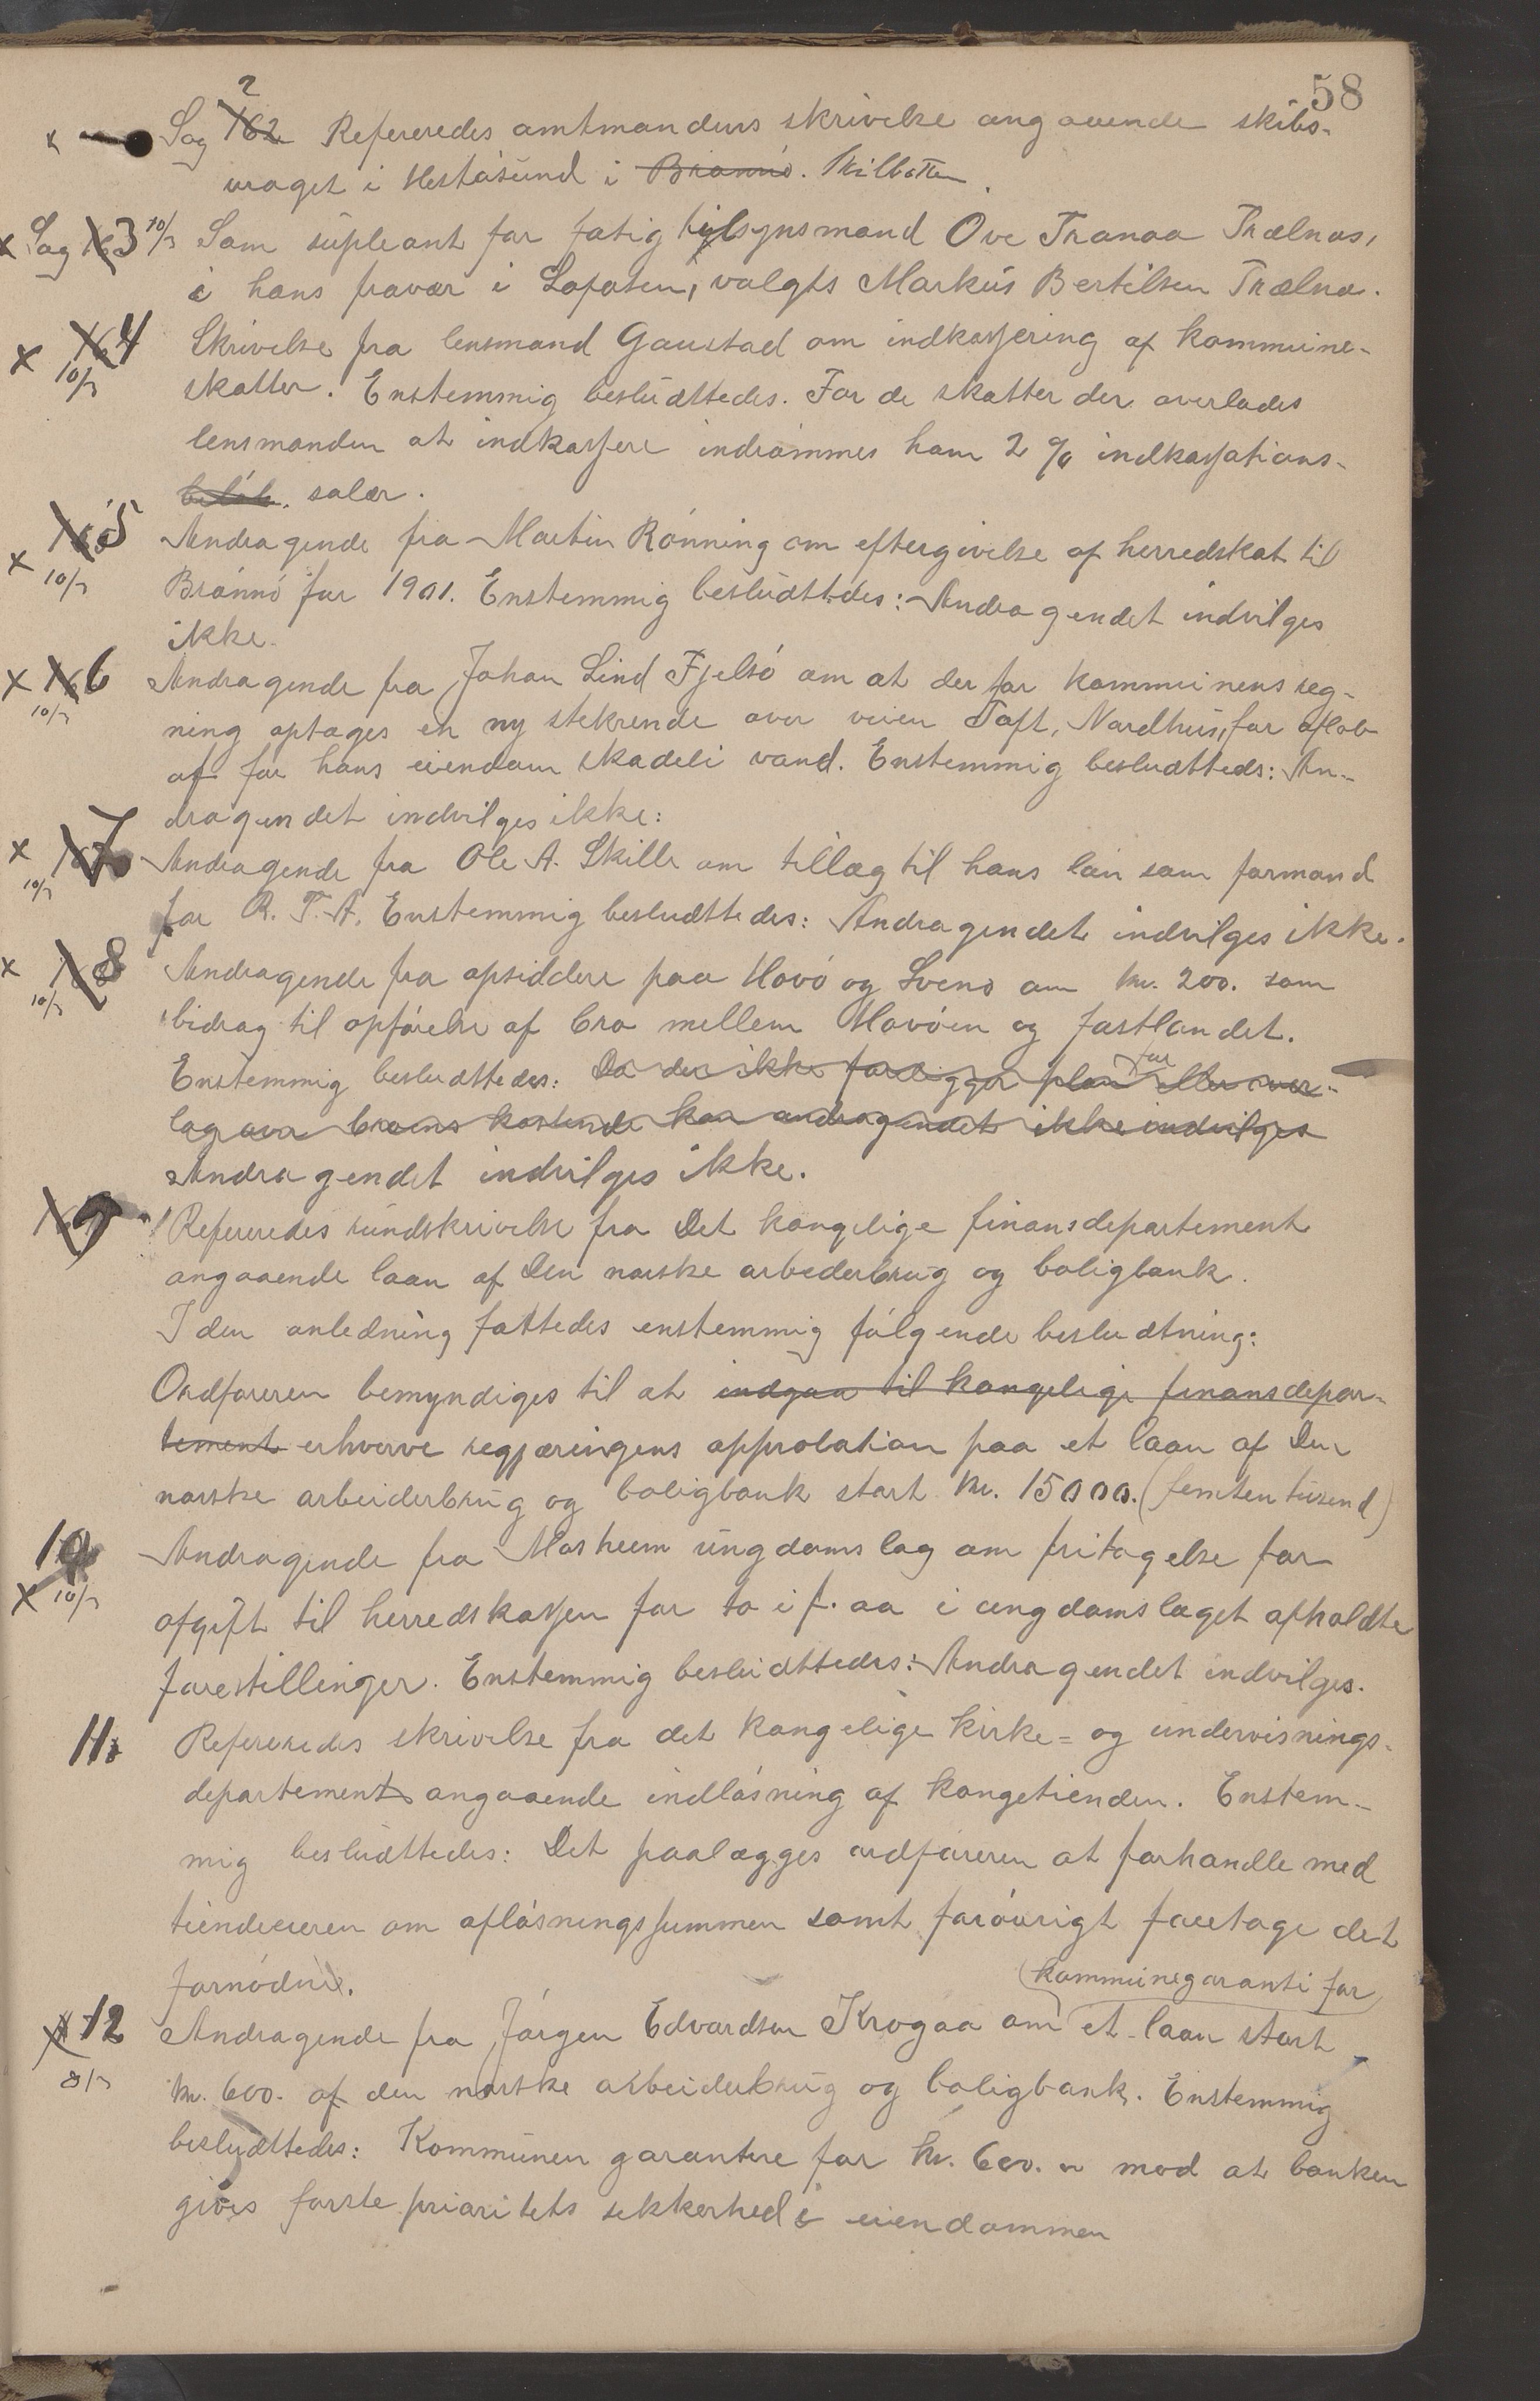 58
Sag 2 Refereredes amtmandens skrivelse angaaende skibs-
vraget i Hestøsund i Brønnø. Skilbotten.
x Sag 3 10/3 Som supleant for fatig tilsynsmand Ove Tranaa Trælnæs,
i hans fravær i Lofoten, valgts Markus Bertilsen Trælnæ.
x 4 10/3 Skrivelse fra lensmand Gaustad om indkassering af kommune-
skatter. Enstemmig besludttedes. For de skatter der overlades
lensmanden at indkassere indrømmes ham 2 % indkassations-
beløb. salær.
x 5 10/3 Andragende fra Martin Rønning om eftergivelse af herredskat til
Brønnø for 1901. Enstemmig besludttedes: Andragendet indvilges
ikke.
x 6 10/3 Andragende fra Johan Lind Fjelsø om at der for kommunens reg-
ning optages en ny stekrende over veien Toft, Nordhus, for afløb
af for hans eiendom skadeli vand. Enstemmig besludtteds: An-
dragendet indvilges ikke:
x 7 10/3 Andragende fra Ole A. Skille om tillæg til hans løn som formand
for R. T. A. Enstemmig besludttedes: Andragendet indvilges ikke.
x 8 10/3 Andragende fra opsiddere paa Hovø og Svenø om kr. 200. som
bidrag til opførelse af bro mellem Hovøen og fastlandet.
Enstemmig besludttedes: Da der ikke foreligger plan for eller over-
lag over broens kostende kan andragendet ikke indvilges
Andragendet indvilges ikke.
9 Refereredes rundskrivelse fra Det kongelige finansdepartement
angaaende laan af Den norske arbederbrug og boligbank.
I den anledning fattedes enstemmig følgende besludtning:
Ordføreren bemyndiges til at indgaa til kongelige finansdepar-
tement erhverve regjæringens approbation paa et laan af Den
norske arbeiderbrug og boligbank stort kr. 15000. (femten tusend)
10 x 10/3 Andragende fra Mosheim ungdomslag om fritagelse for
afgift til herredskassen for to i f. aa i ungdomslaget afholdte
forestillinger. Enstemmig besludttedes: Andragendet indvilges.
11. Refereredes skrivelse fra det kongelige kirke= og undervisnings-
departement angaaende indløsning af kongetienden. Enstem-
mig besludttedes: Det paalægges ordføreren at forhandle med
tiendeeieren om afløsningssummen samt forøvrigt foretage det
fornødne.
kommunegaranti for
x 12 8/3 Andragende fra Jørgen Edvardsen Krogaa om et laan stort
kr. 600. af den norske arbeiderbrug og boligbank. Enstemmig
besludttedes: Kommunen garantere for kr. 600. mod at banken
gives første prioritets sikkerhed i eiendommen